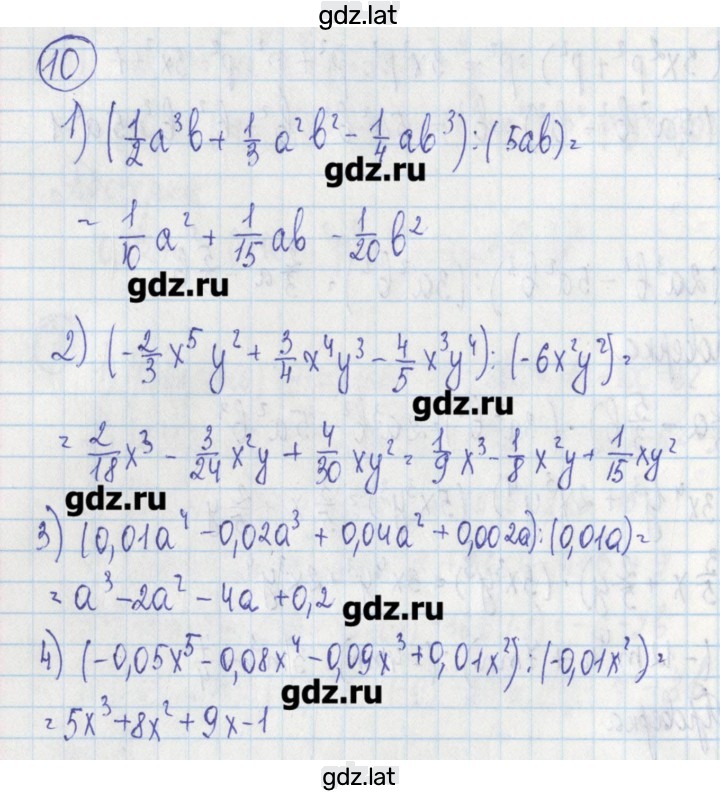 gdz.lat
10
1) (1/2 a³b + 1/3 a²b² - 1/4 ab³) : (5ab) =
gdz.ru
= 1/10 a² + 1/15 ab - 1/20 b²
gdz.ru
2) (-2/3 x⁵y² + 3/4 x⁴y³ - 4/5 x³y⁴) : (-6x²y²) =
gdz.ru
= 2/18 x³ - 3/24 x²y + 4/30 xy² = 1/9 x³ - 1/8 x²y + 1/15 xy²
gdz.ru
3) (0,01a⁴ - 0,02a³ + 0,04a² + 0,002a) : (0,01a) =
= a³ - 2a² - 4a + 0,2
gdz.ru
4) (-0,05x⁵ - 0,08x⁴ - 0,09x³ + 0,01x²) : (-0,01x²) =
gdz.ru
= 5x³ + 8x² + 9x - 1
gdz.lat